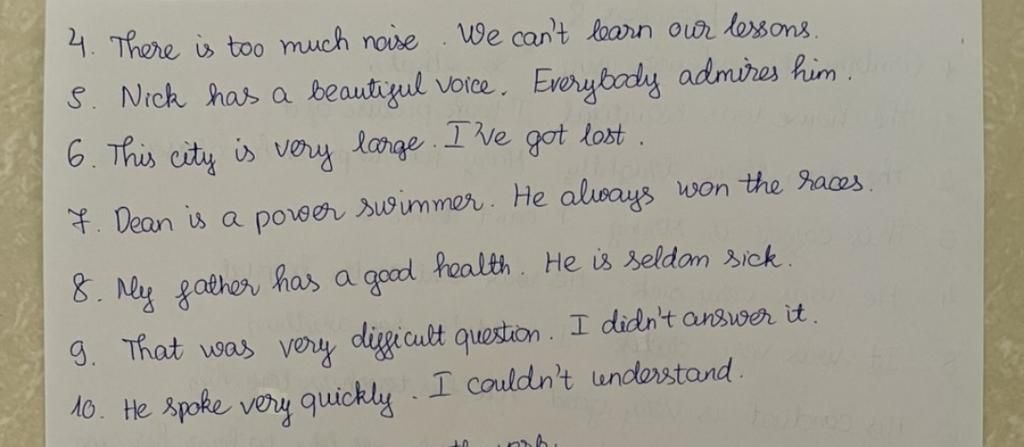 4. There is too much noise. We can't learn our lessons.
5. Nick has a beautiful voice. Everybody admires him.
6. This city is very large. I've got lost.
7. Dean is a power swimmer. He always won the races.
8. My father has a good health. He is seldom sick.
9. That was very difficult question. I didn't answer it.
10. He spoke very quickly. I couldn't understand.